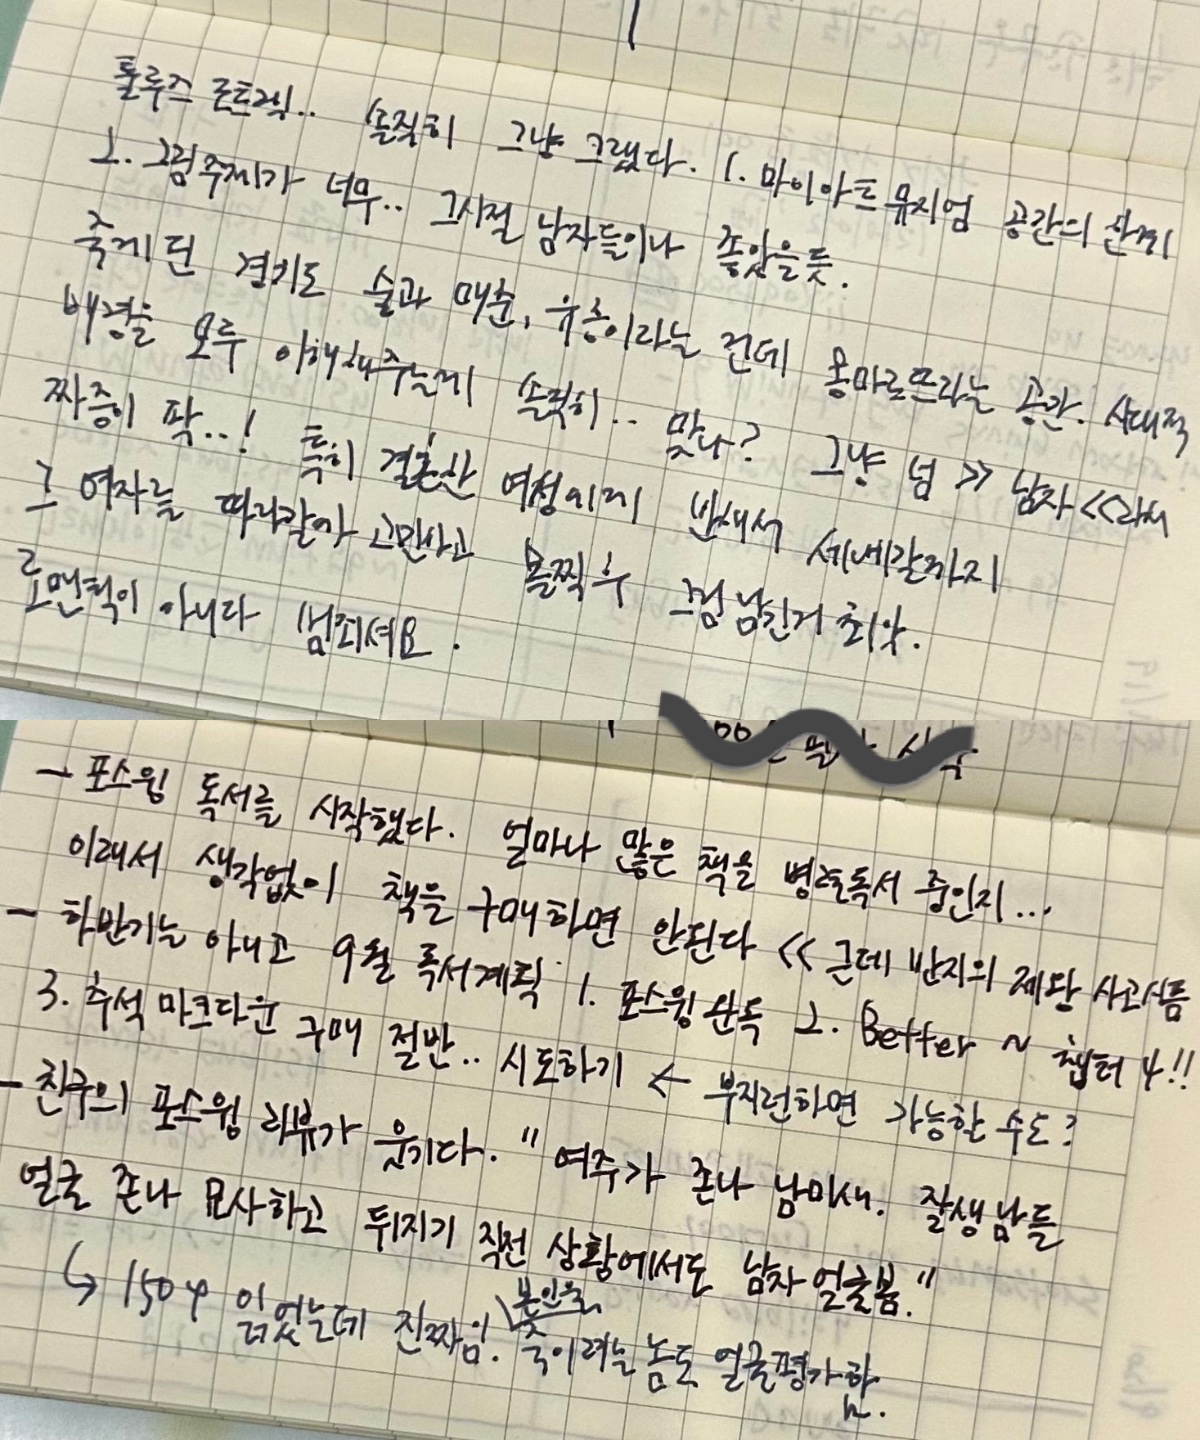 툴루즈 로트렉.. 솔직히 그냥 그랬다. 1. 마이아트뮤지엄 공간의 한계
2. 그림주제가 너무.. 그시절 남자들이나 좋았을듯.
죽게된 경기도 술과 매춘, 유흥이라는 건데 몽마르뜨라는 공간. 시대적
배경을 모두 이해해주는게 솔직히.. 맞나? 그냥 넘 >> 남자 <<라서
짜증이 팍..! 특히 결혼한 여성에게 반해서 세네갈까지
그 여자를 따라갈까 고민하고 몰찍 후 그림 남긴거 최악.
로맨틱이 아니다 범죄셔요.
- 포스윙 독서를 시작했다. 얼마나 많은 책을 병렬독서 중인지...
이래서 생각없이 책을 구매하면 안된다 << 근데 반지의 제왕 사고싶음
- 하반기는 아니고 9월 독서계획 1. 포스윙 완독 2. Better ~ 챕터 4!!
3. 추석 마크다운 구매 절반.. 시도하기 ← 부지런하면 가능할 수도?
- 친구의 포스윙 리뷰가 웃기다. "여주가 존나 남미새. 잘생남들
얼굴 존나 묘사하고 뒤지기 직전 상황에서도 남자 얼굴봄."
↳ 150p 읽었는데 진짜임. 본인을 죽이려는 놈도 얼굴평가함.